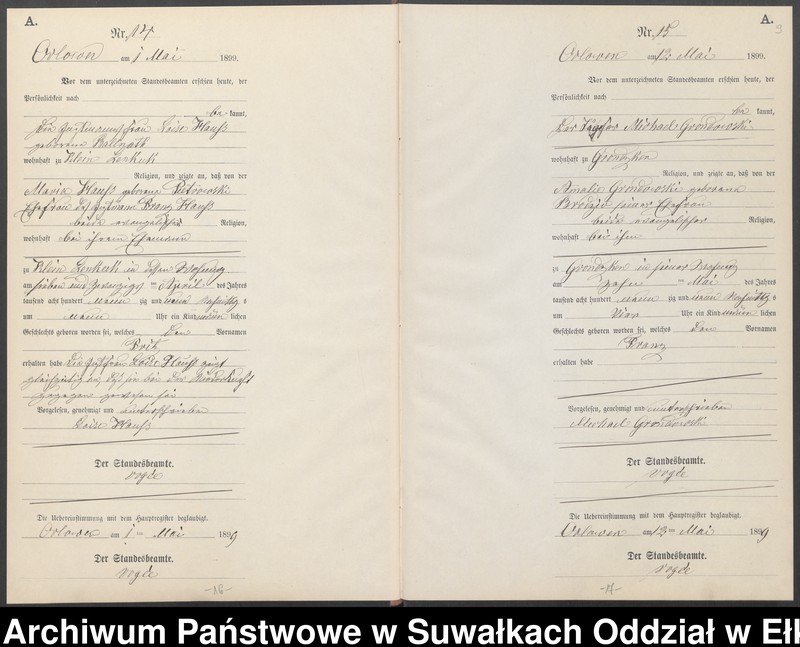 A.
Nr. 14
Orlowen am 1 Mai 1899.
Vor dem unterzeichneten Standesbeamten erschien heute, der
Persönlichkeit nach
be kannt,
die Frau Louise Hauß
geborene
wohnhaft zu Klein Lenkuk
Religion, und zeigte an, daß von der
Maria Hauß geborene Petrowski
Ehefrau des Franz Hauß
beide evangelischer Religion,
wohnhaft bei ihrem Ehemann
zu Klein Lenkuk in dessen Wohnung
am sieben und zwanzigsten April des Jahres
tausend acht hundert neun zig und neun Vormittags
um neun Uhr ein Kind männ lichen
Geschlechts geboren worden sei, welches den Vornamen
Fritz
erhalten habe die Louise Hauß zeigt
gleichzeitig an, daß sie bei der Niederkunft
zugegen gewesen sei
Vorgelesen, genehmigt und unterschrieben
Louise Hauß
Der Standesbeamte.
Vogée
Die Uebereinstimmung mit dem Hauptregister beglaubigt.
Orlowen am 1 ten Mai 1899
Der Standesbeamte.
Vogée
-16-
A.
9
Nr. 15
Orlowen am 13 Mai 1899.
Vor dem unterzeichneten Standesbeamten erschien heute, der
Persönlichkeit nach
be kannt,
der Michael Grondowski
wohnhaft zu Grondzken
Religion, und zeigte an, daß von der
Amalie Grondowski geborene
seiner Ehefrau
beide evangelischer Religion,
wohnhaft bei ihm
zu Grondzken in seiner Wohnung
am zehnten Mai des Jahres
tausend acht hundert neun zig und neun Nachmittags
um vier Uhr ein Kind männ lichen
Geschlechts geboren worden sei, welches den Vornamen
Franz
erhalten habe
Vorgelesen, genehmigt und unterschrieben
Michael Grondowski
Der Standesbeamte.
Vogée
Die Uebereinstimmung mit dem Hauptregister beglaubigt.
Orlowen am 13 ten Mai 1899
Der Standesbeamte.
Vogée
-17-
Archiwum Państwowe w Suwałkach Oddział w Ełk